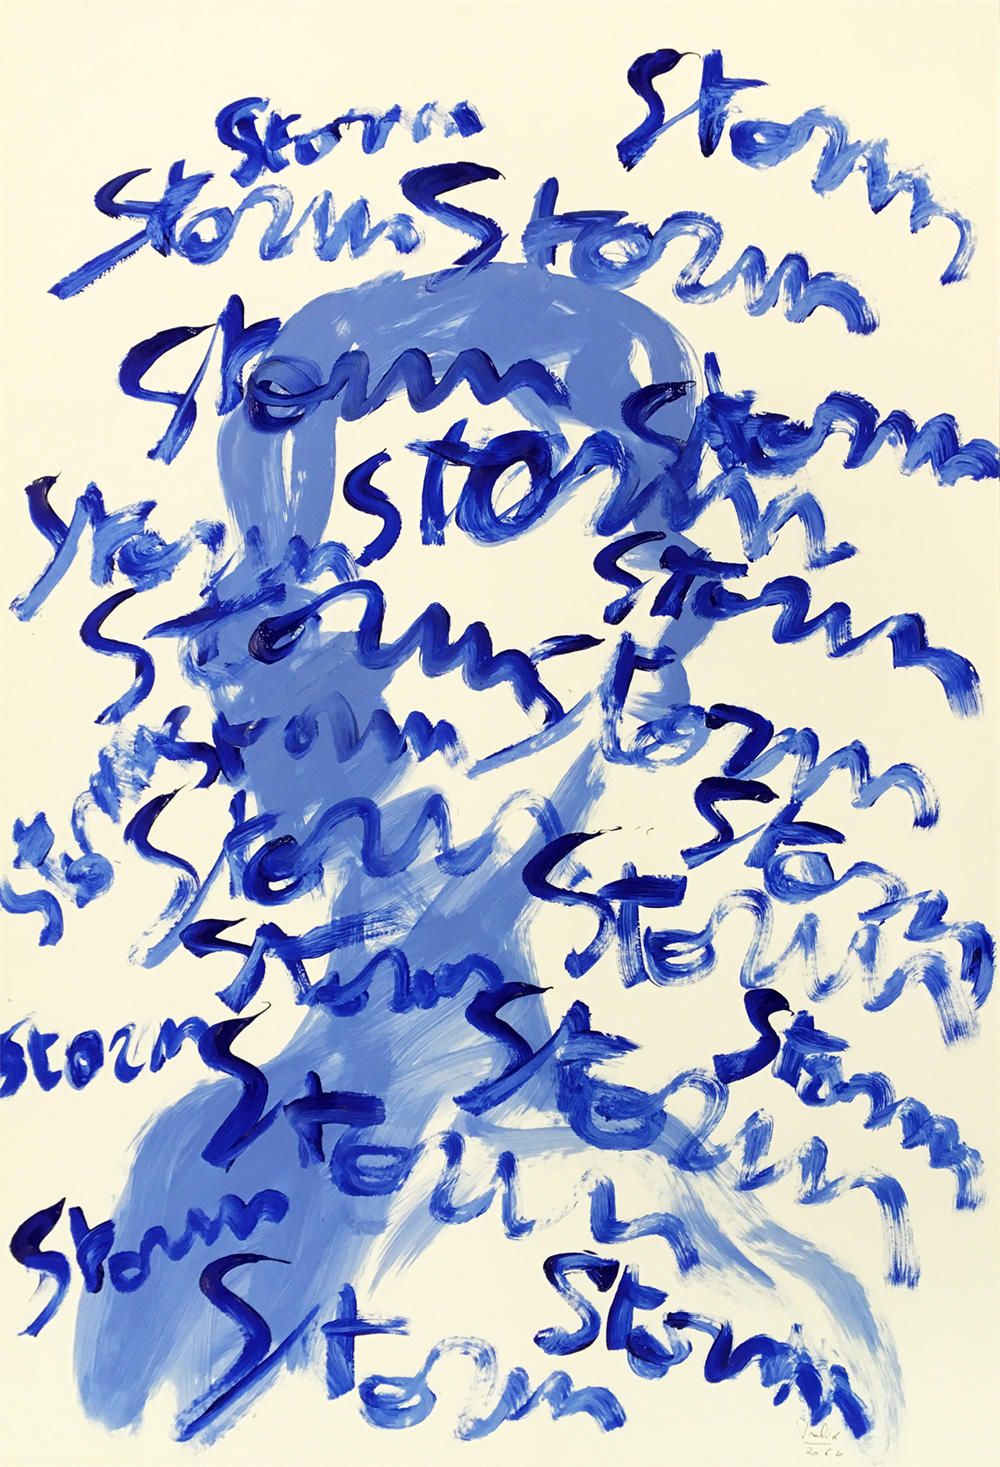 Storm Storm
Storm Storm
Storm Storm
storm
Storm Storm
Storm Storm
Storm
Storm Storm
Storm Storm
Storm
storm Storm Storm
Storm
Storm
Storm Storm